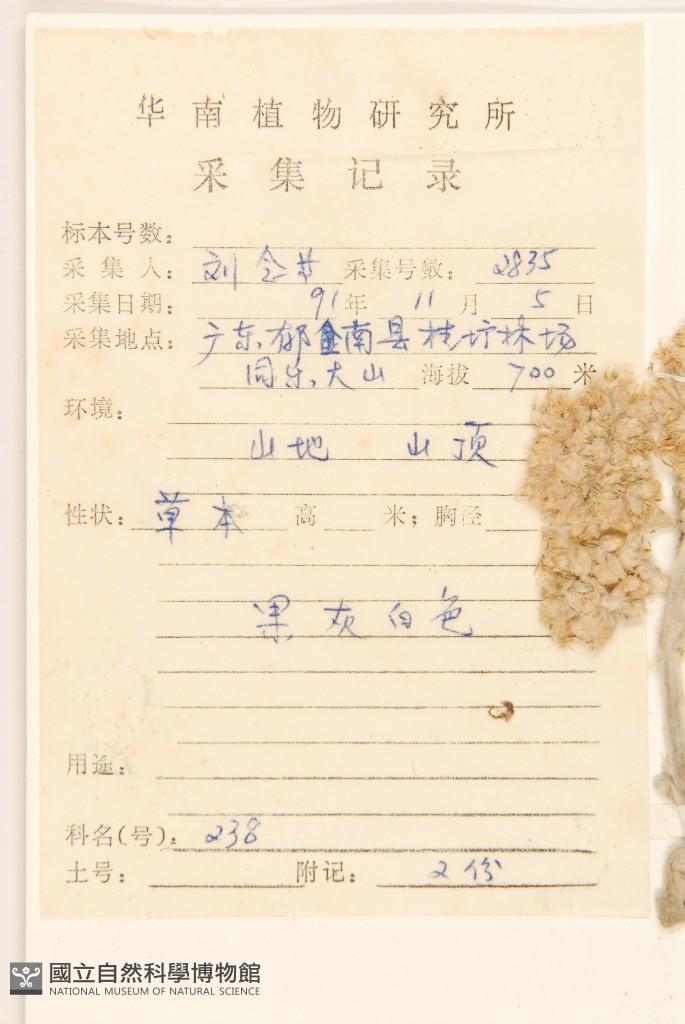 华南植物研究所
采集记录
标本号数:
采集人: 刘念 采集号数: 2835
采集日期: 91年 11月 5日
采集地点: 广东郁南县桂圩林场
同乐大山 海拔 700 米
环境:
山地 山顶
性状: 草本 高 米; 胸径
果灰白色
用途:
科名(号): 238
土号: 附记: 2份
國立自然科學博物館
NATIONAL MUSEUM OF NATURAL SCIENCE